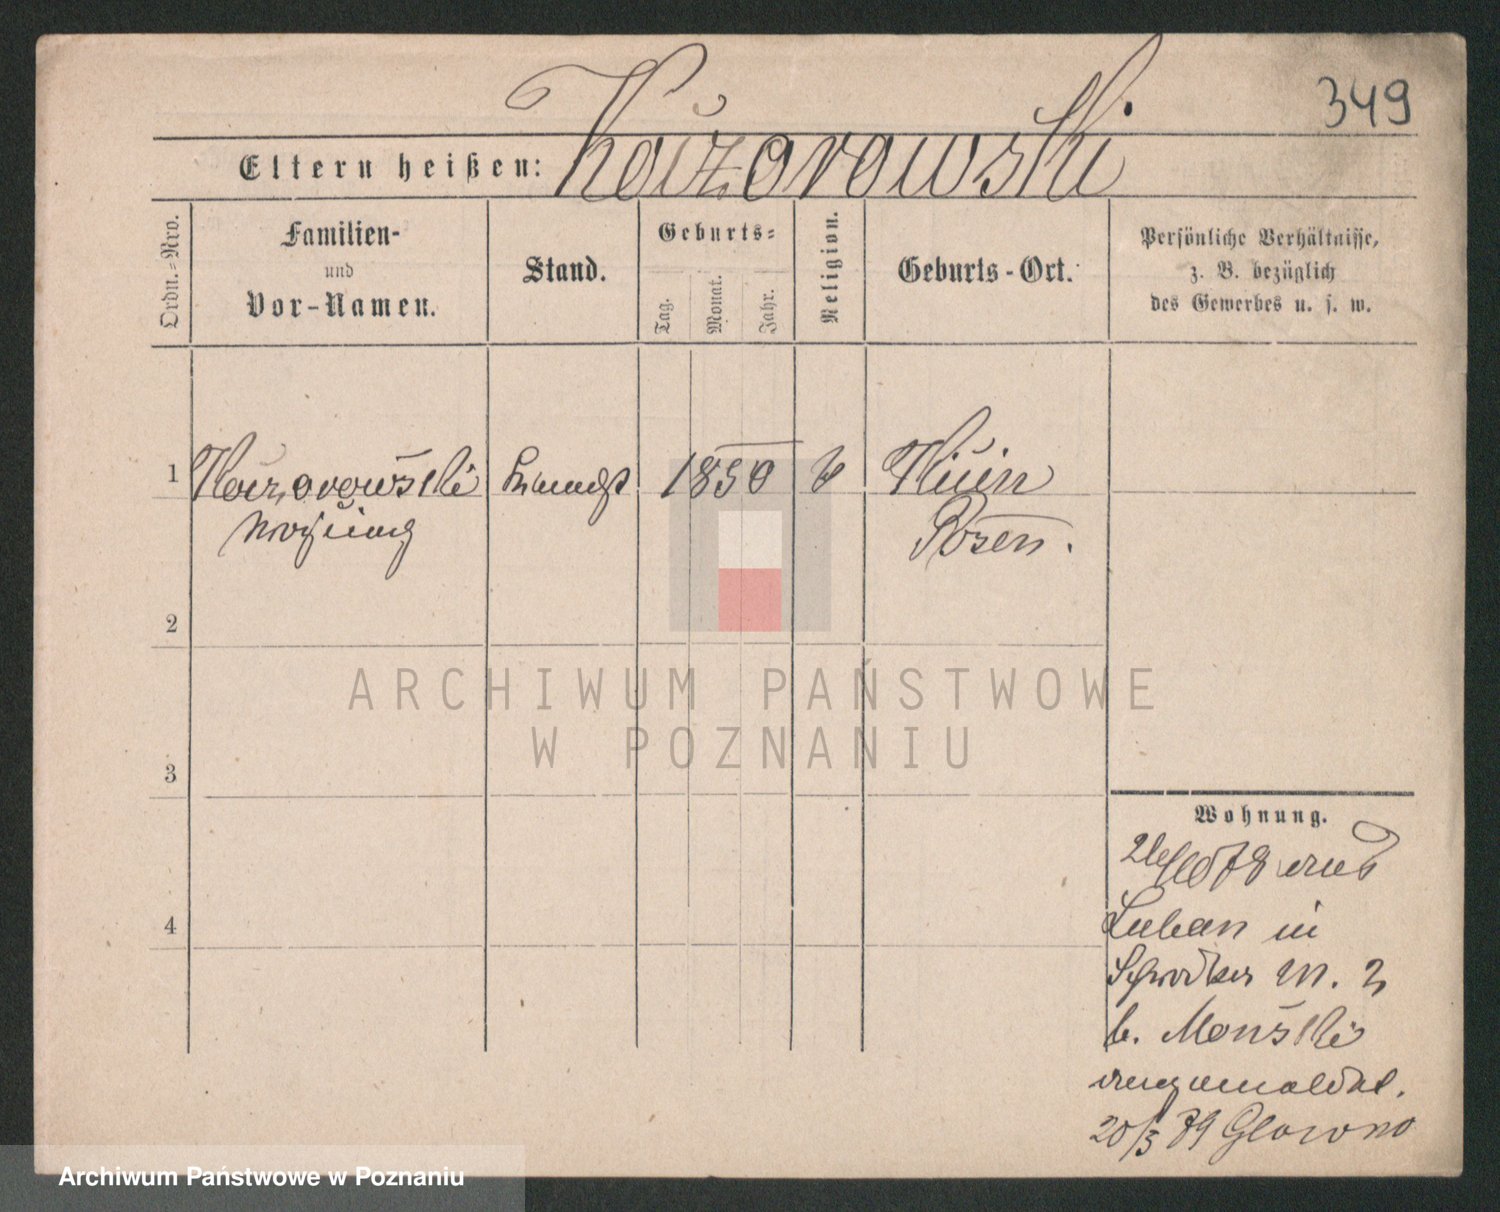 349
Eltern heißen: Kaczorowski
Ordn.-Nro.
Familien-
und
Vor-Namen.
Stand.
Geburts-
Tag.
Monat.
Jahr.
Religion.
Geburts-Ort.
Persönliche Verhältnisse,
z. B. bezüglich
des Gewerbes u. s. w.
1 Kaczorowski 1850
Posen.
2
3
4
ARCHIWUM PAŃSTWOWE
W POZNANIU
Wohnung.
aus
Luban in
Schrodker M. 2
b. Monski
angemeldet.
20/3 89 Glowno
Archiwum Państwowe w Poznaniu